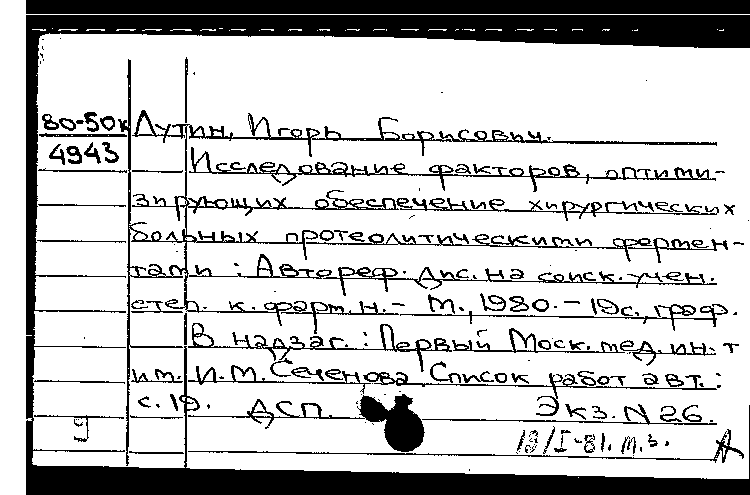 80-50к Лутин, Игорь Борисович.
4943 Исследование факторов, оптими-
зирующих обеспечение хирургических
больных протеолитическими фермен-
тами : Автореф. Дис. на соиск. учен.
степ. к. фарм. н. - М., 1980. - 19с., граф.
В надзаг. : Первый Моск. мед. ин-т
им. И.М. Сеченова. Список работ авт. :
с. 19. ДСП. Экз. N 26.
9 19/I-81. м.з. А